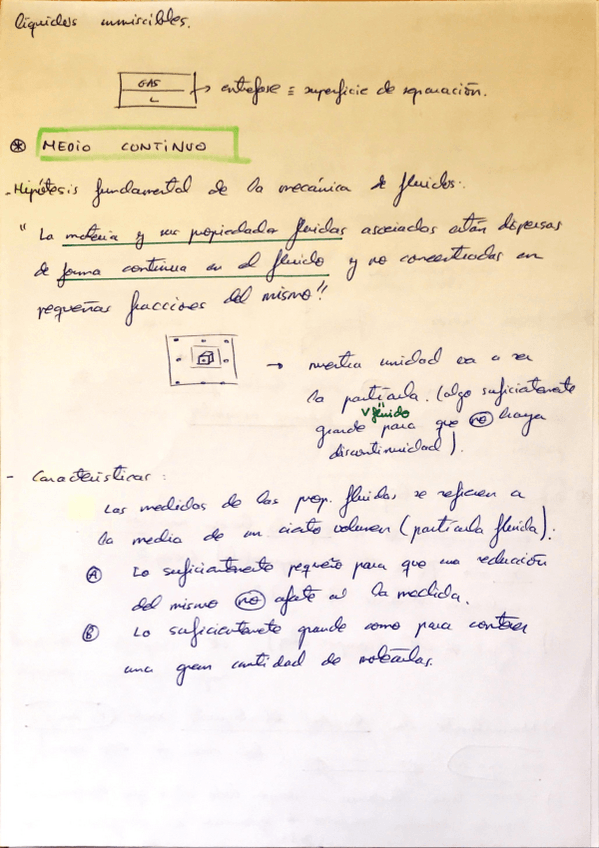 líquidos inmiscibles.
GAS
L
→ entrefase ≡ superficie de separación.
⊛ MEDIO CONTINUO
- Hipótesis fundamental de la mecánica de fluidos:
" La materia y sus propiedades fluidas asociadas están dispersas
de forma continua en el fluido y no concentradas en
pequeñas fracciones del mismo".
→ nuestra unidad va a ser
la partícula. (algo suficientemente
V fluido
grande para que no haya
discontinuidad).
- Características:
Las medidas de las prop. fluidas se refieren a
la media de un cierto volumen (partícula fluida):
Ⓐ Lo suficientemente pequeño para que una reducción
del mismo no afecte a la medida.
Ⓑ Lo suficientemente grande como para contener
una gran cantidad de moléculas.